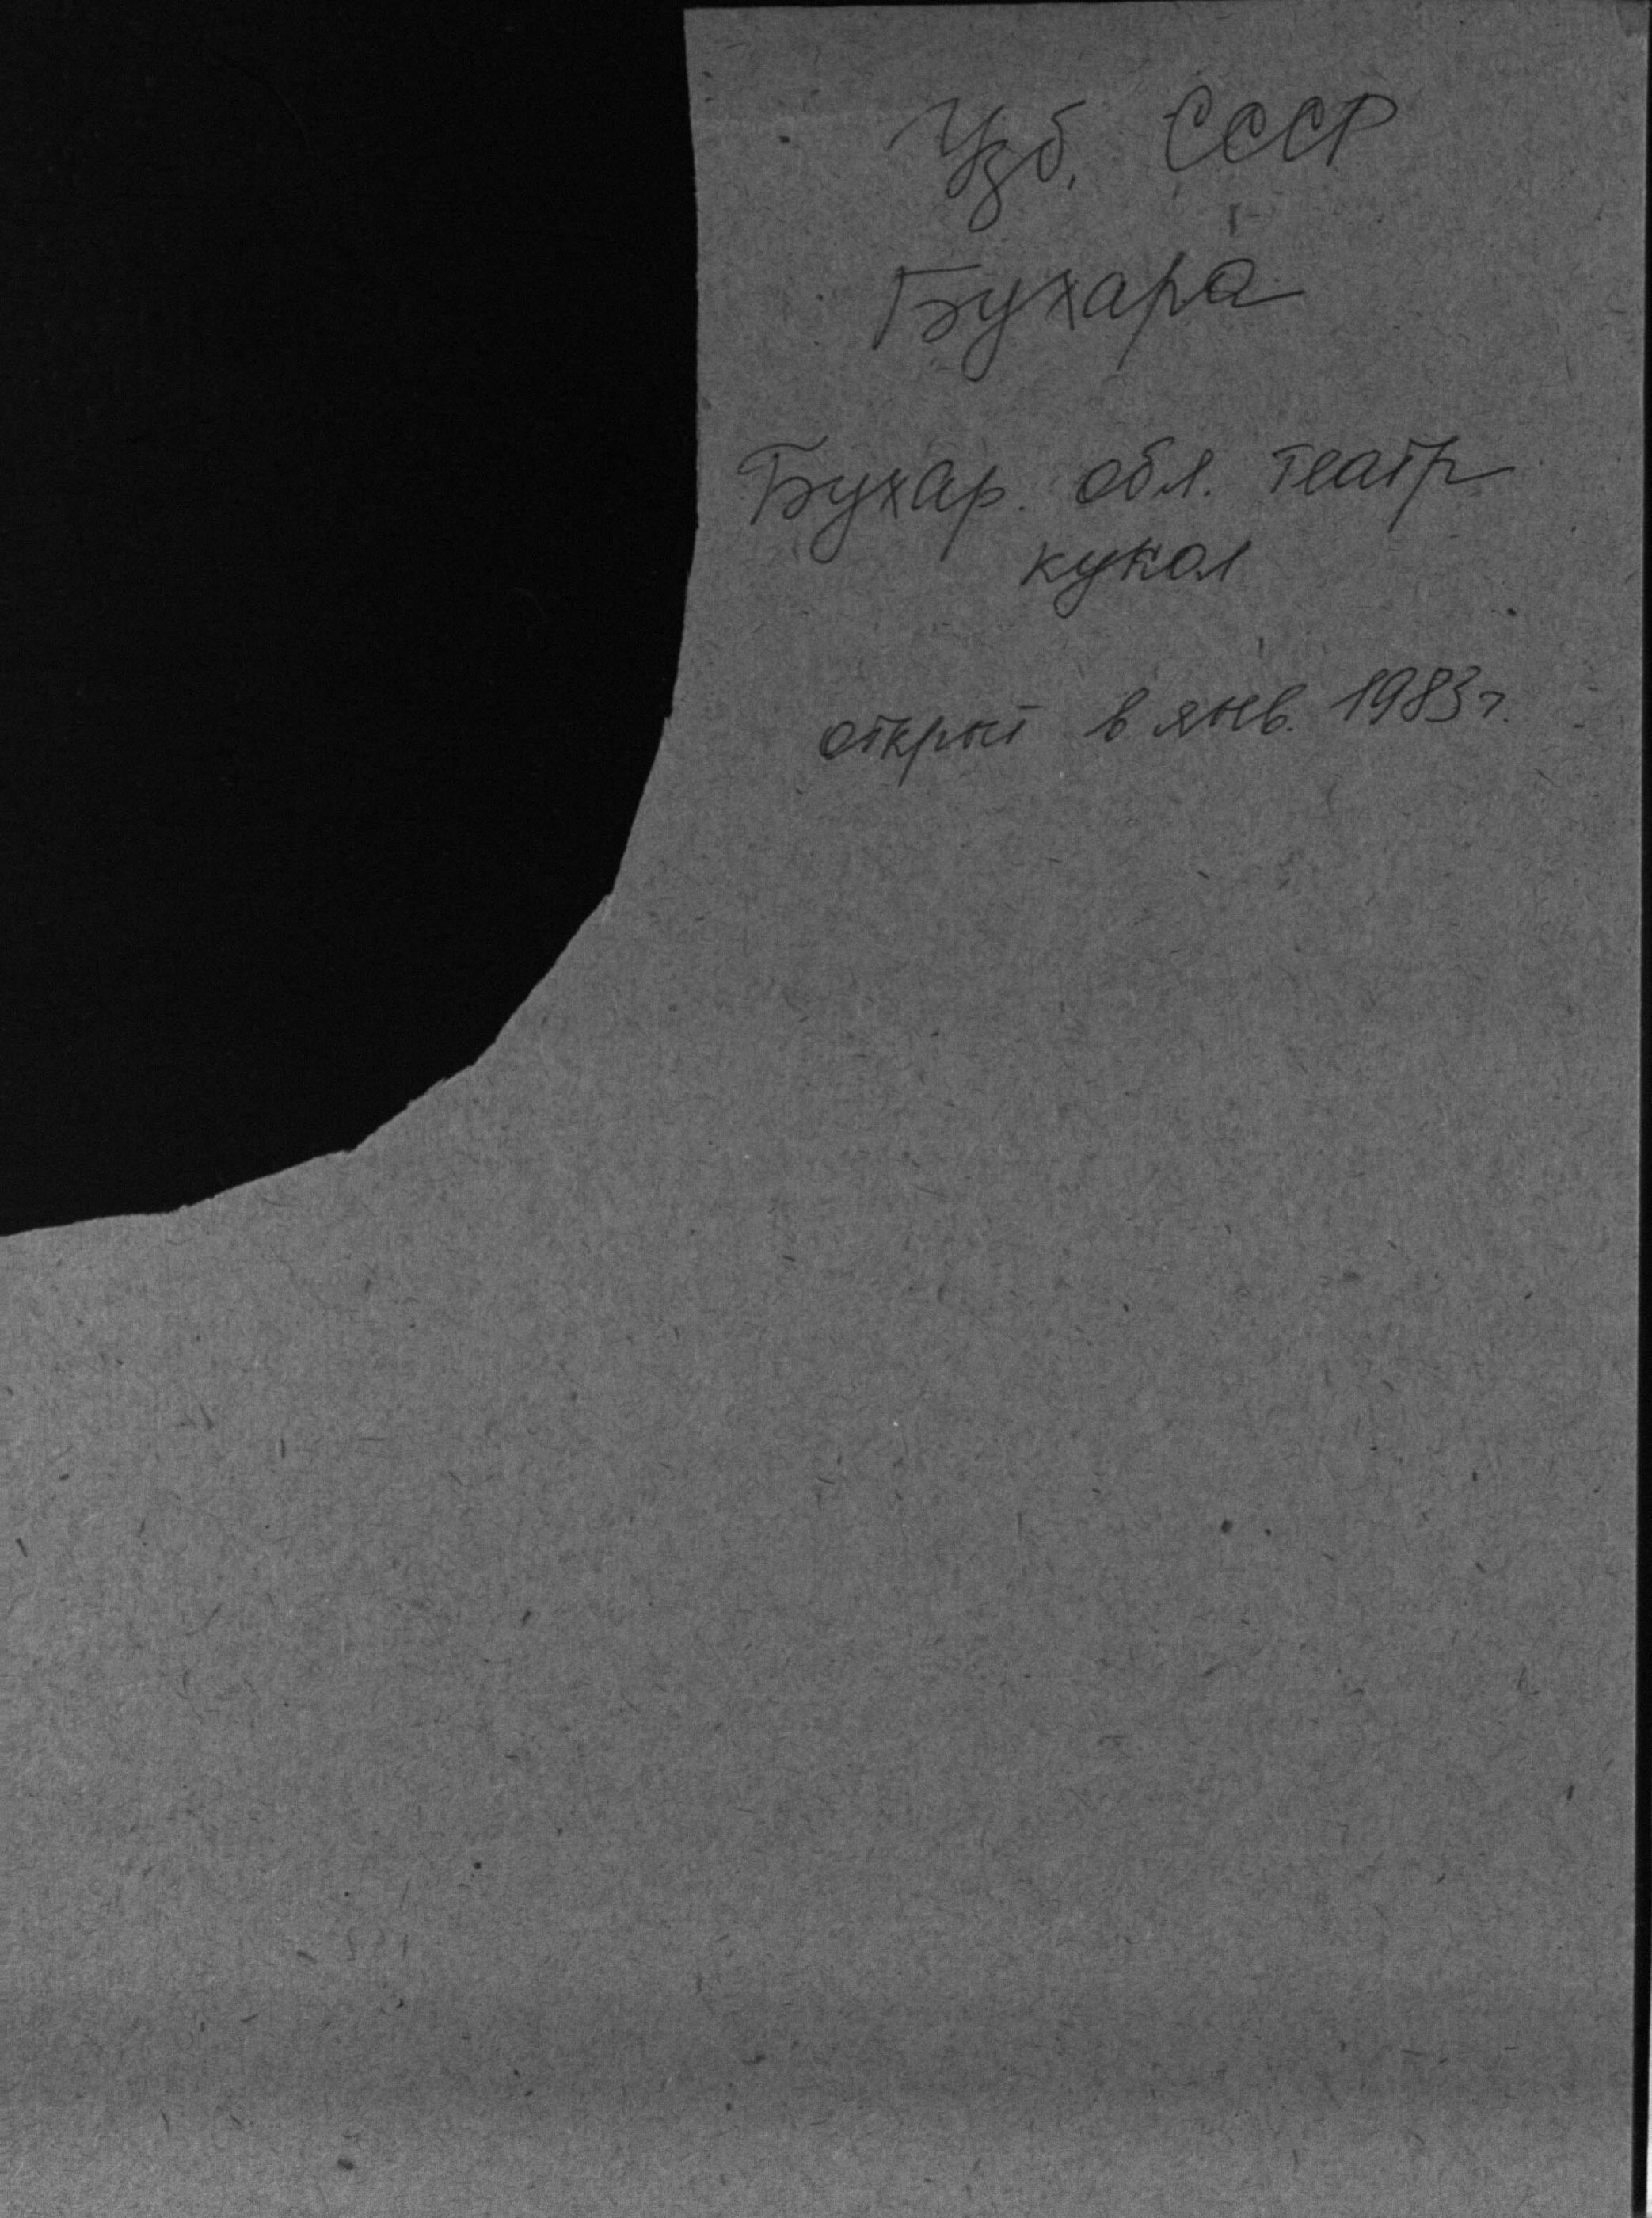 Узб. ССР
Бухара
Бухар. обл. театр
кукол
открыт в янв. 1983 г.